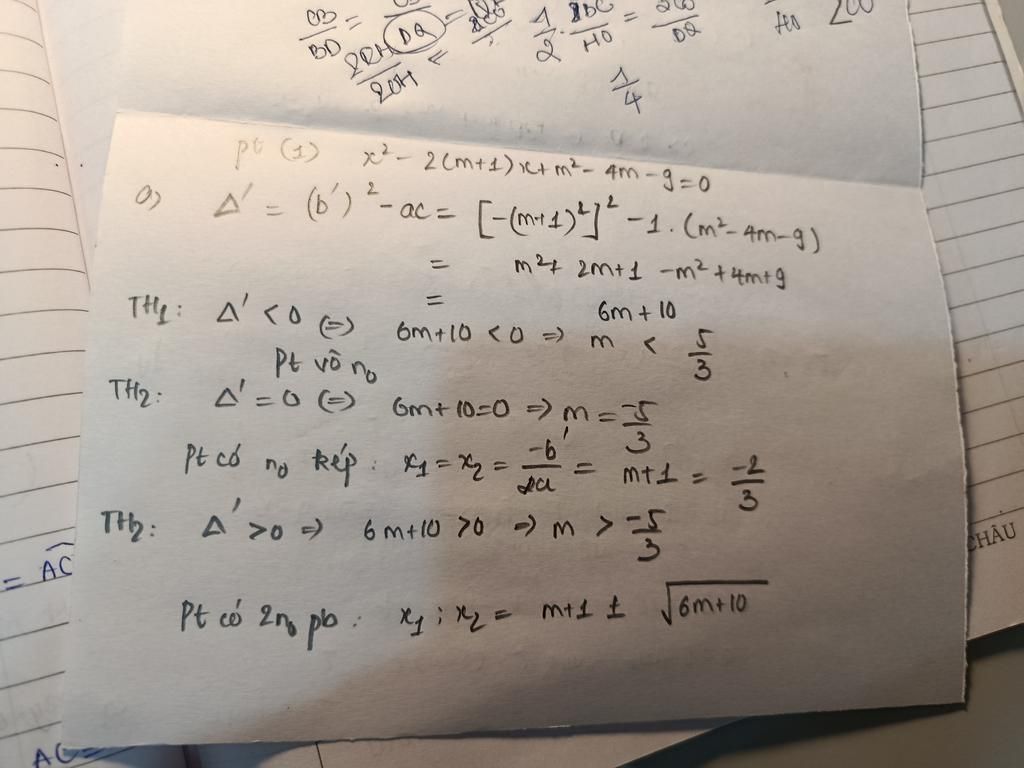 OB/BD = = 1/2 . 2DC/HO = 2CO/DQ
2OH
1/4
pt (1) x² - 2(m+1)x + m² - 4m - 9 = 0
a) Δ' = (b')² - ac = [-(m+1)²]² - 1 . (m² - 4m - 9)
= m² + 2m + 1 - m² + 4m + 9
= 6m + 10
TH1: Δ' < 0 (=) 6m + 10 < 0 => m < 5/3
Pt vô n0
TH2: Δ' = 0 (=) 6m + 10 = 0 => m = -5/3
Pt có n0 kép : x1 = x2 = -b'/2a = m + 1 = -2/3
TH2: Δ' > 0 => 6m + 10 > 0 => m > -5/3
CHÂU
= AC
Pt có 2n0 pb : x1 ; x2 = m + 1 ± √6m+10
AC =